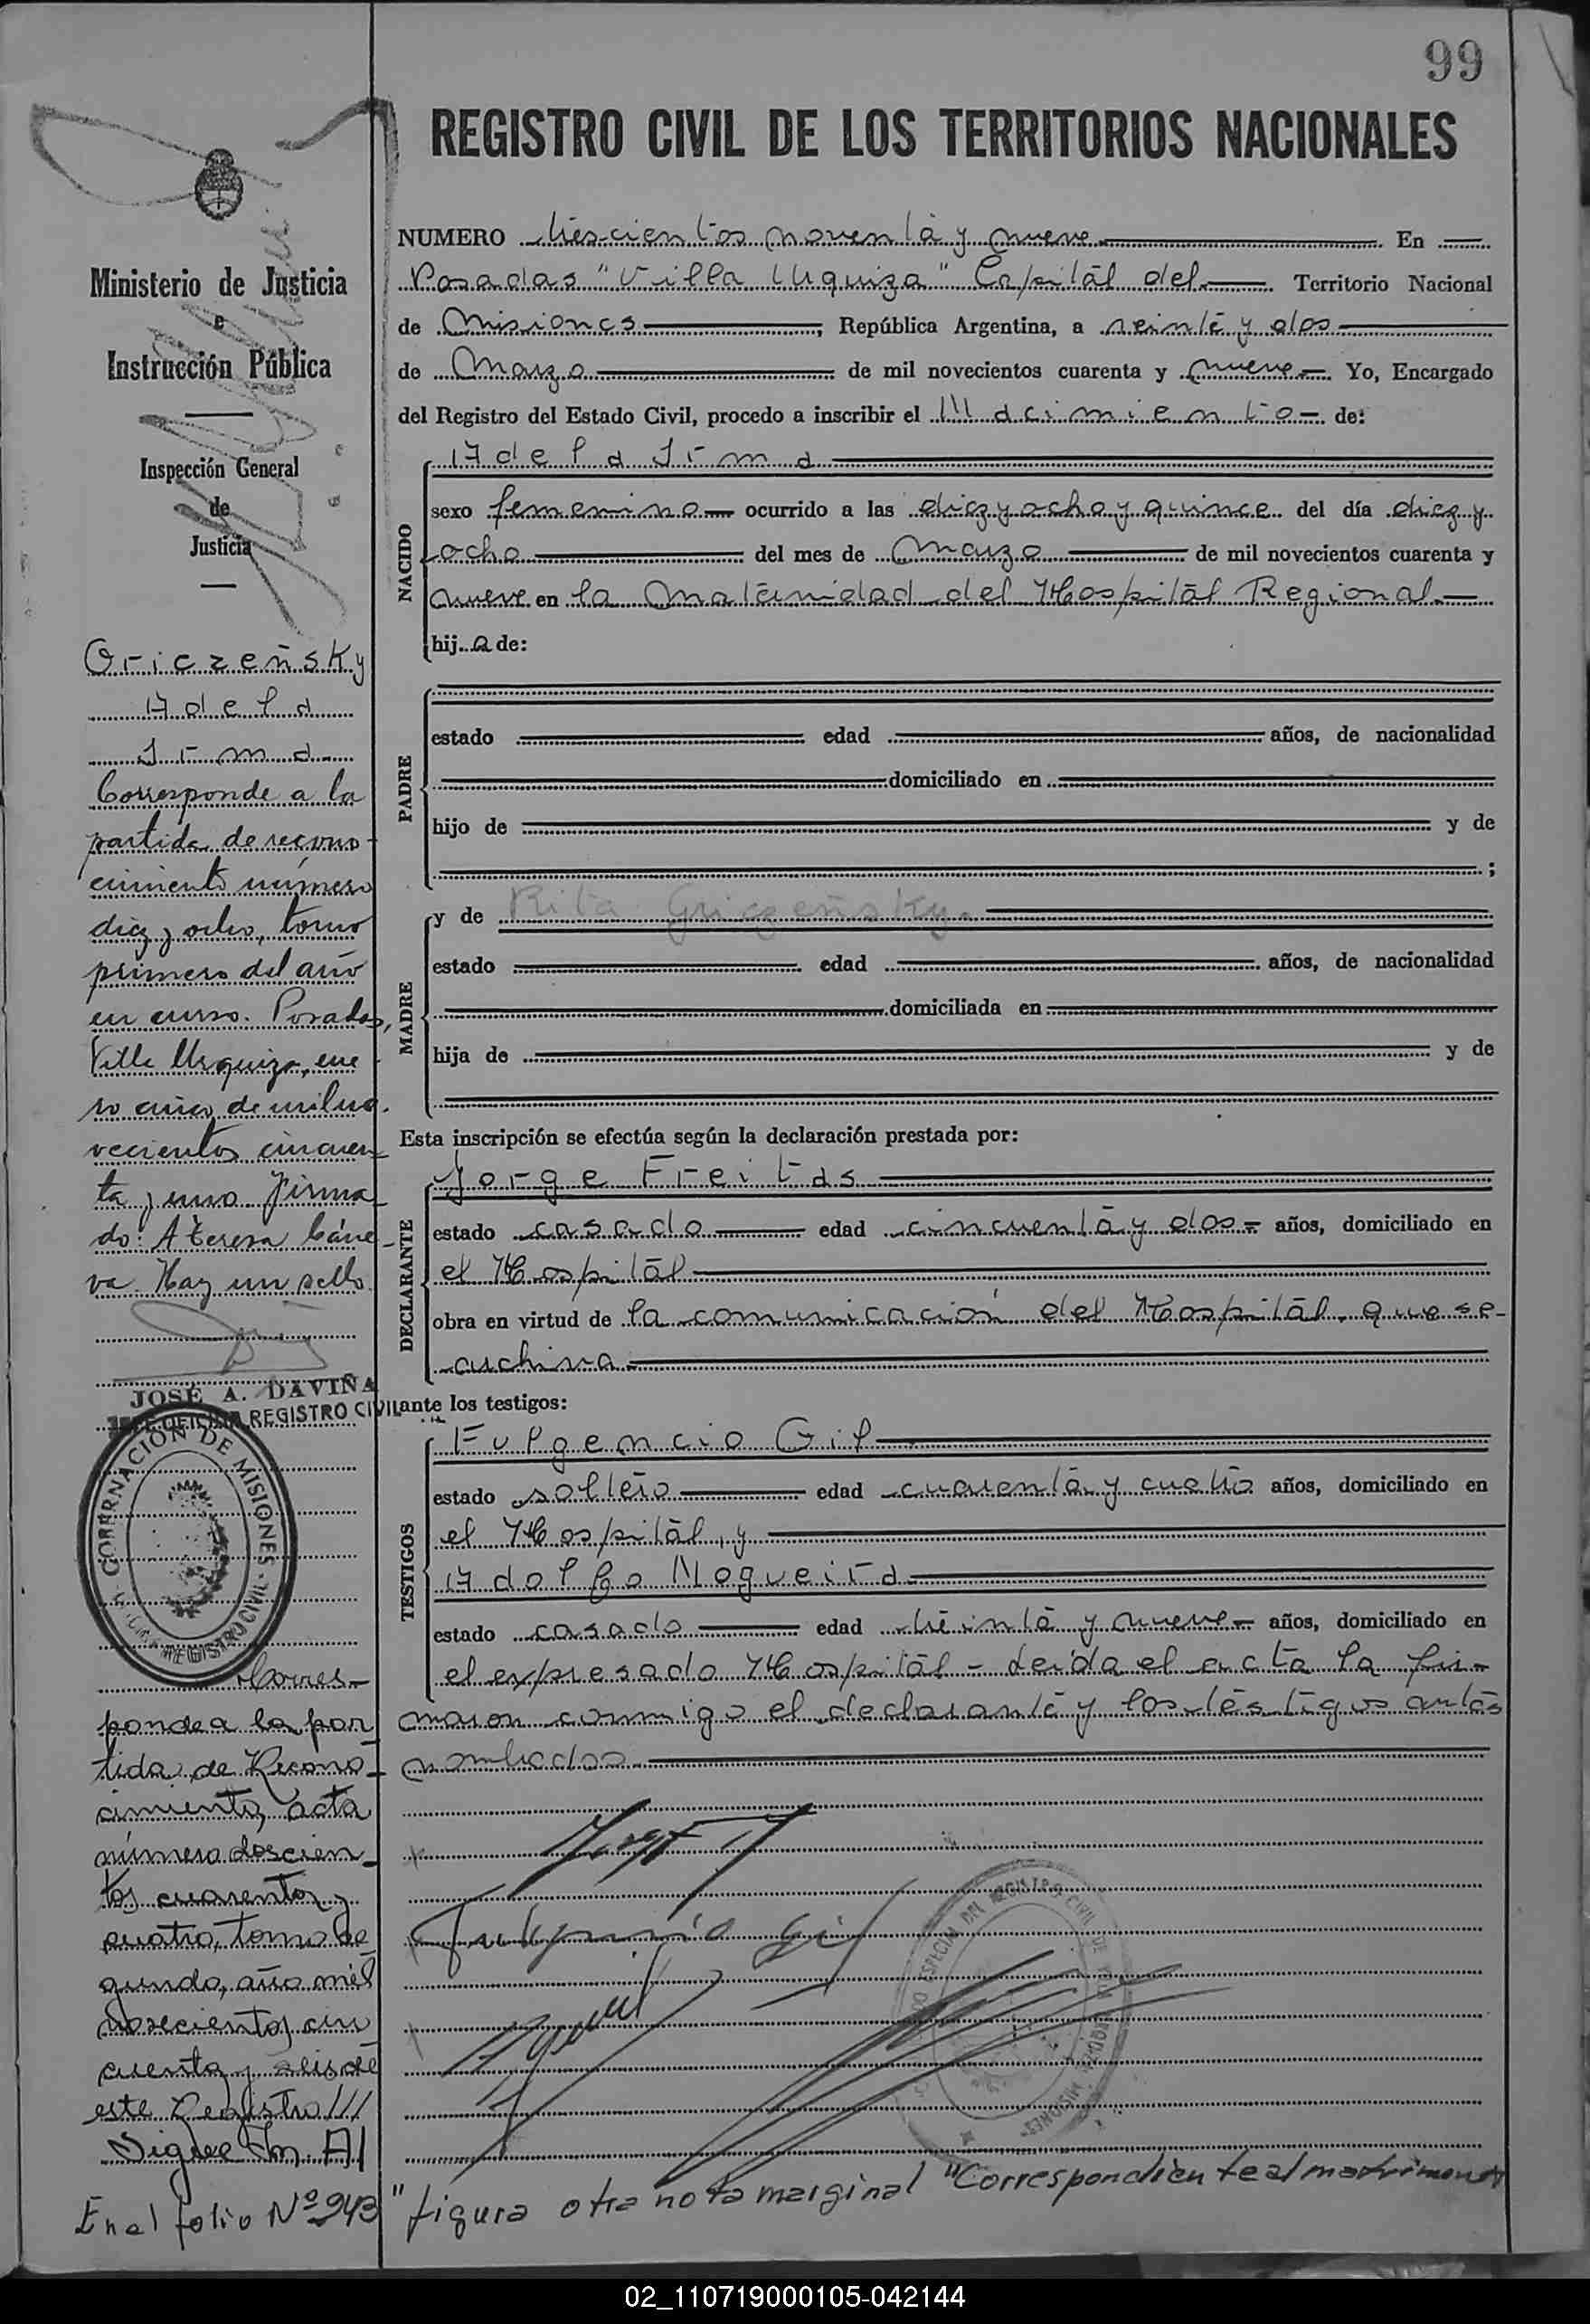 99
REGISTRO CIVIL DE LOS TERRITORIOS NACIONALES
NUMERO trescientos noventa y nueve En
Posadas "Villa Urquiza" Capital del Territorio Nacional
de Misiones, República Argentina, a veinte y dos
de Marzo de mil novecientos cuarenta y nueve Yo, Encargado
del Registro del Estado Civil, procedo a inscribir el Nacimiento de:
NACIDO
Adela Irma
sexo femenino ocurrido a las diez y ocho y quince del día diez y
ocho del mes de Marzo de mil novecientos cuarenta y
nueve en la Maternidad del Hospital Regional
hij a de:
PADRE
estado edad años, de nacionalidad
domiciliado en
hijo de y de
;
MADRE
y de Rita Griczeñsky.
estado edad años, de nacionalidad
domiciliada en
hija de y de
Esta inscripción se efectúa según la declaración prestada por:
DECLARANTE
Jorge Freitas
estado casado edad cincuenta y dos años, domiciliado en
el Hospital
obra en virtud de la comunicación del Hospital, que se
archiva
ante los testigos:
TESTIGOS
Fulgencio Gil
estado soltero edad cuarenta y cuatro años, domiciliado en
el Hospital, y
Adolfo Nogueira
estado casado edad treinta y nueve años, domiciliado en
el expresado Hospital - Leida el acta la fir-
maron conmigo el declarante y los testigos antes
nombrados
Fulgencio Gil
Ministerio de Justicia
e
Instrucción Pública
Inspección General
de
Justicia
Griczeñsky
Adela
Irma
Corresponde a la
partida de recono-
cimiento número
diez y ocho, tomo
primero del año
en curso. Posadas,
Villa Urquiza, ene-
ro cinco de mil no-
vecientos cincuen-
ta y uno. Firma-
do: A Teresa Cáne-
va. Hay un sello.
JOSÉ A. DAVIÑA
JEFE OFICINA REGISTRO CIVIL
GOBERNACION DE MISIONES
REGISTRO CIVIL
Corres-
ponde a la par
tida de Recono-
cimiento, acta
número doscien-
tos cuarenta y
cuatro, tomo se
gundo, año mil
novecientos cin
cuenta y seis de
este Registro ///
Sigue In. Al
En el folio Nº 943 "figura otra nota marginal "Correspondiente al matrimonio
02_110719000105-042144